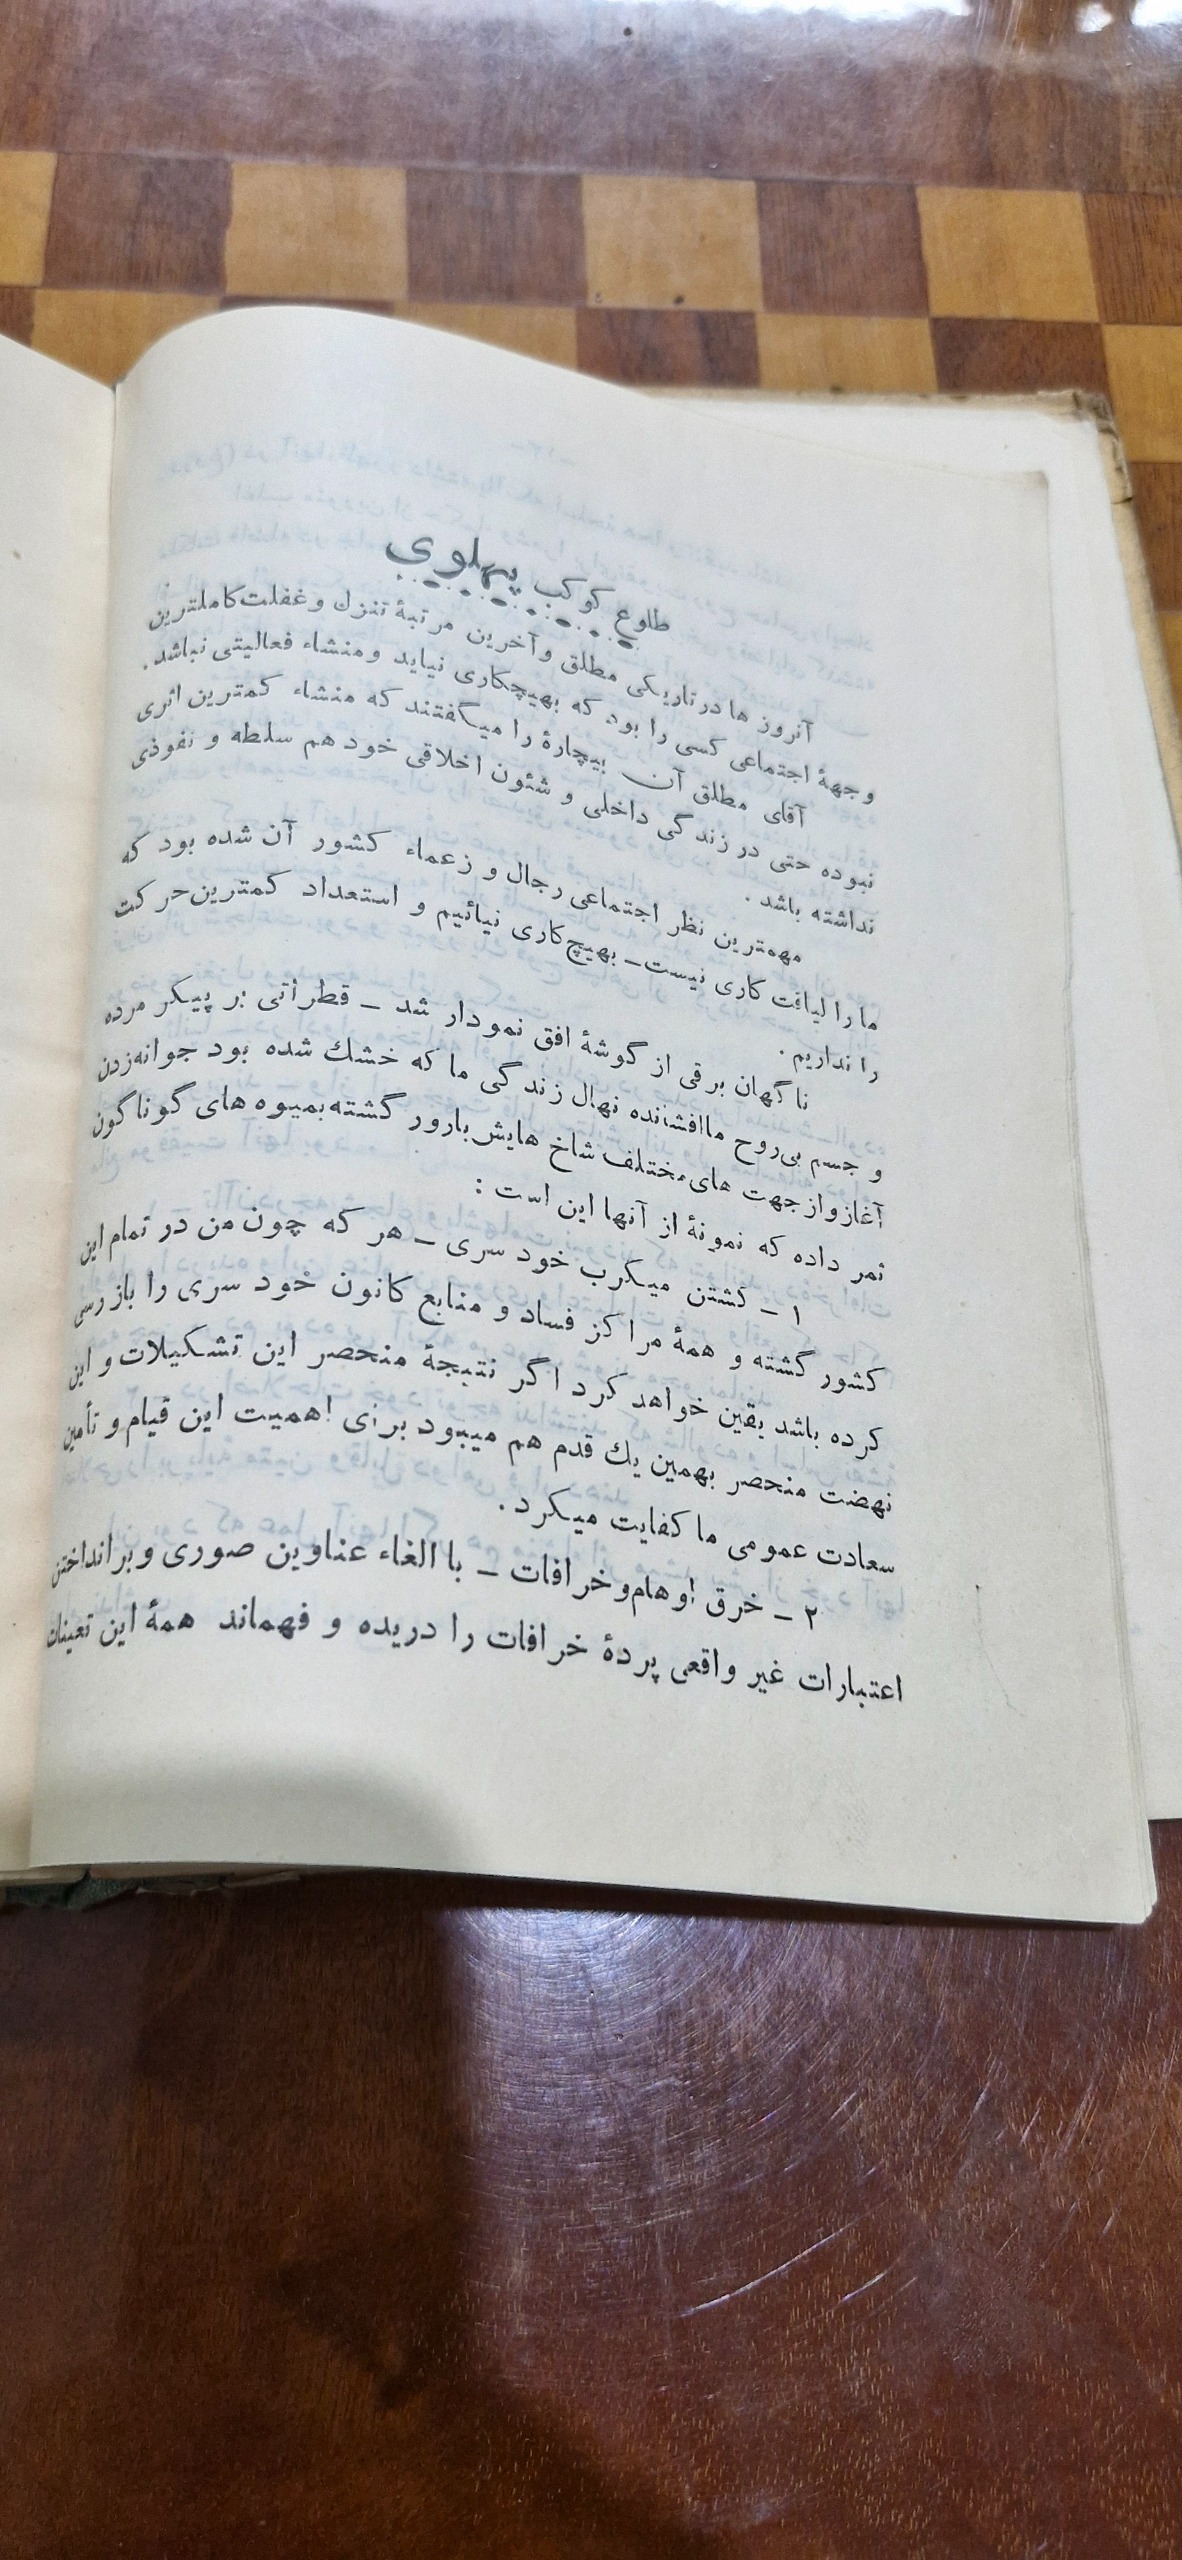 طلوع کوکب پهلوی
آنروز ها در تاریکی مطلق و آخرین مرتبۀ تنزل و غفلت کاملترین
وجهۀ اجتماعی کسی را بود که بهیچکاری نیاید و منشاء فعالیتی نباشد .
آقای مطلق آن بیچارۀ را میگفتند که منشاء کمترین اثری
نبوده حتی در زندگی داخلی و شئون اخلاقی خود هم سلطه و نفوذی
نداشته باشد .
مهمترین نظر اجتماعی رجال و زعماء کشور آن شده بود که
ما را لیاقت کاری نیست ـ بهیچ کاری نیائیم و استعداد کمترین حرکت
را نداریم .
ناگهان برقی از گوشۀ افق نمودار شد ـ قطراتی بر پیکر مرده
و جسم بی‌روح ما افشانده نهال زندگی ما که خشك شده بود جوانه زدن
آغاز و از جهت های مختلف شاخ هایش بارور گشته بمیوه های گوناگون
ثمر داده که نمونۀ از آنها این است :
۱ ـ کشتن میکرب خود سری ـ هر که چون من در تمام این
کشور گشته و همۀ مراکز فساد و منابع کانون خود سری را بازرسی
کرده باشد یقین خواهد کرد اگر نتیجۀ منحصر این تشکیلات و این
نهضت منحصر بهمین یك قدم هم میبود برای اهمیت این قیام و تأمین
سعادت عمومی ما کفایت میکرد .
۲ ـ خرق اوهام و خرافات ـ با الغاء عناوین صوری و برانداختن
اعتبارات غیر واقعی پردۀ خرافات را دریده و فهماند همۀ این تعینات